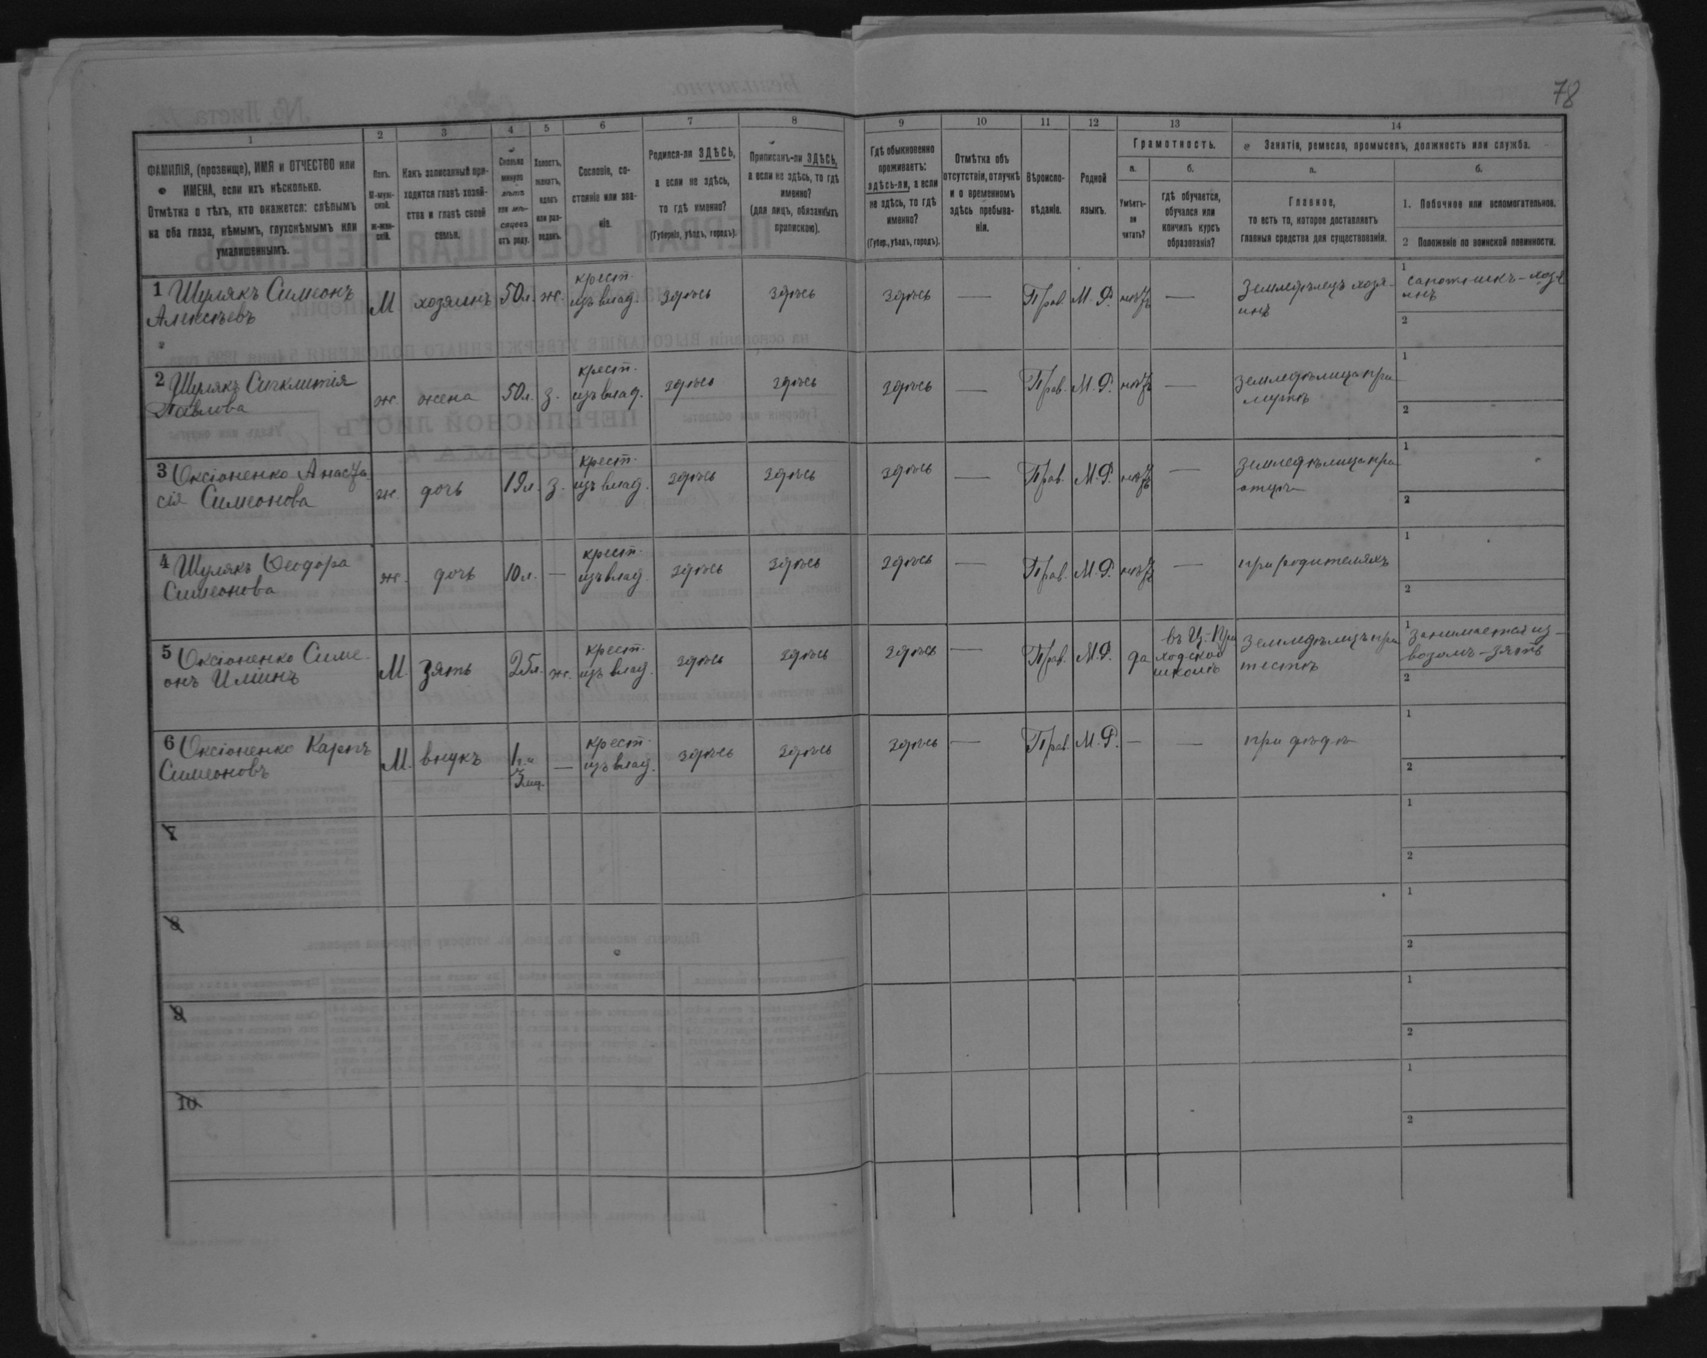 78
1 2 3 4 5 6 7 8 9 10 11 12 13 14
ФАМИЛІЯ, (прозвище), ИМЯ и ОТЧЕСТВО или
ИМЕНА, если ихъ нѣсколько.
Отмѣтка о тѣхъ, кто окажется: слѣпымъ
на оба глаза, нѣмымъ, глухонѣмымъ или
умалишеннымъ.
Полъ.
М-муж-
ской.
ж-жен-
скій.
Какъ записанный при-
ходится главѣ хозяй-
ства и главѣ своей
семьи.
Сколько
минуло
лѣтъ
или мѣ-
сяцевъ
отъ роду.
Холостъ,
женатъ,
вдовъ
или раз-
веденъ.
Сословіе, со-
стояніе или зва-
ніе.
Родился-ли ЗДѢСЬ,
а если не здѣсь,
то гдѣ именно?
(Губернія, уѣздъ, городъ).
Приписанъ-ли ЗДѢСЬ,
а если не здѣсь, то гдѣ
именно?
(для лицъ, обязанныхъ
припискою).
Гдѣ обыкновенно
проживаетъ:
здѣсь-ли, а если
не здѣсь, то гдѣ
именно?
(Губер., уѣздъ, городъ).
Отмѣтка объ
отсутствіи, отлучкѣ
и о временномъ
здѣсь пребыва-
ніи.
Вѣроиспо-
вѣданіе.
Родной
языкъ.
Грамотность.
а.
Умѣетъ-
ли
читать?
б.
гдѣ обучается,
обучался или
кончилъ курсъ
образованія?
Занятія, ремесло, промыселъ, должность или служба.
а.
Главное,
то есть то, которое доставляетъ
главныя средства для существованія.
б.
1. Побочное или вспомогательное.
2 Положеніе по воинской повинности.
1 Шулякъ Симеонъ
Алексѣевъ
М хозяинъ 50 л. ж. крест.
изъ влад. здѣсь здѣсь здѣсь — Прав. М. Р. нѣтъ — Земледѣлецъ хозя-
инъ
1 сапожникъ-хозя
инъ
2
2 Шулякъ Сигклитія
Павлова
ж жена 50 л. з. крест.
изъ влад. здѣсь здѣсь здѣсь — Прав. М. Р. нѣтъ — земледѣлица при
мужѣ
1
2
3 Оксіоненко Анаста
сія Симеонова
ж. дочь 19 л. з. крест.
изъ влад. здѣсь здѣсь здѣсь — Прав. М. Р. нѣтъ — земледѣлица при
отцѣ
1
2
4 Шулякъ Ѳеодора
Симеонова
ж. дочь 10 л. — крест.
изъ влад. здѣсь здѣсь здѣсь — Прав. М. Р. нѣтъ — при родителяхъ
1
2
5 Оксіоненко Симе-
онъ Илиинъ
М. зять 25 л. ж. крест.
изъ влад. здѣсь здѣсь здѣсь — Прав. М. Р. да въ Ц.-При
ходской
школѣ
Земледѣлецъ при
тестѣ
1 Занимается из-
возомъ-зять
2
6 Оксіоненко Карпъ
Симеоновъ
М. внукъ 1 г. и
3 мц. — крест.
изъ влад. здѣсь здѣсь здѣсь — Прав. М. Р. — — при дѣдѣ
1
2
7
1
2
8
1
2
9
1
2
10
1
2